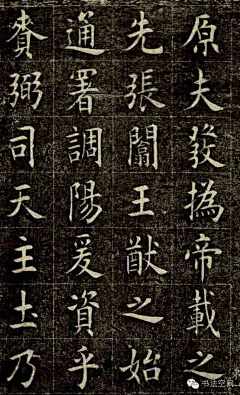 原夫發撝帝載之
先張闡王猷之始
通署調陽爰資乎
賚弼司天主土乃
书法空间